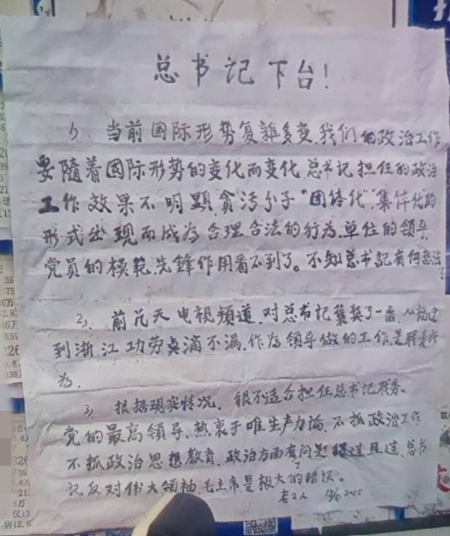 总书记下台!
1)、当前国际形势复杂多变,我们的政治工作
要随着国际形势的变化而变化 总书记担任的政治
工作效果不明顯,贪污分子"团体化""集体化"的
形式出现而成为合理合法的行为,单位的领导
党员的模范先锋作用看不到了。不知总书记有何想法
2)、前几天电视频道,对总书记集奖了一番,从福建
到浙江功劳点滴不漏,作为领导做的工作是
为。
3、根据现实情况,很不适合担任总书记职务。
党的最高领导,热衷于唯生产力论,不抓政治工作
不抓政治思想教育,政治方面有问题得过且过,总书
记反对伟大领袖,毛主席是极大的错误。
老工人 2025